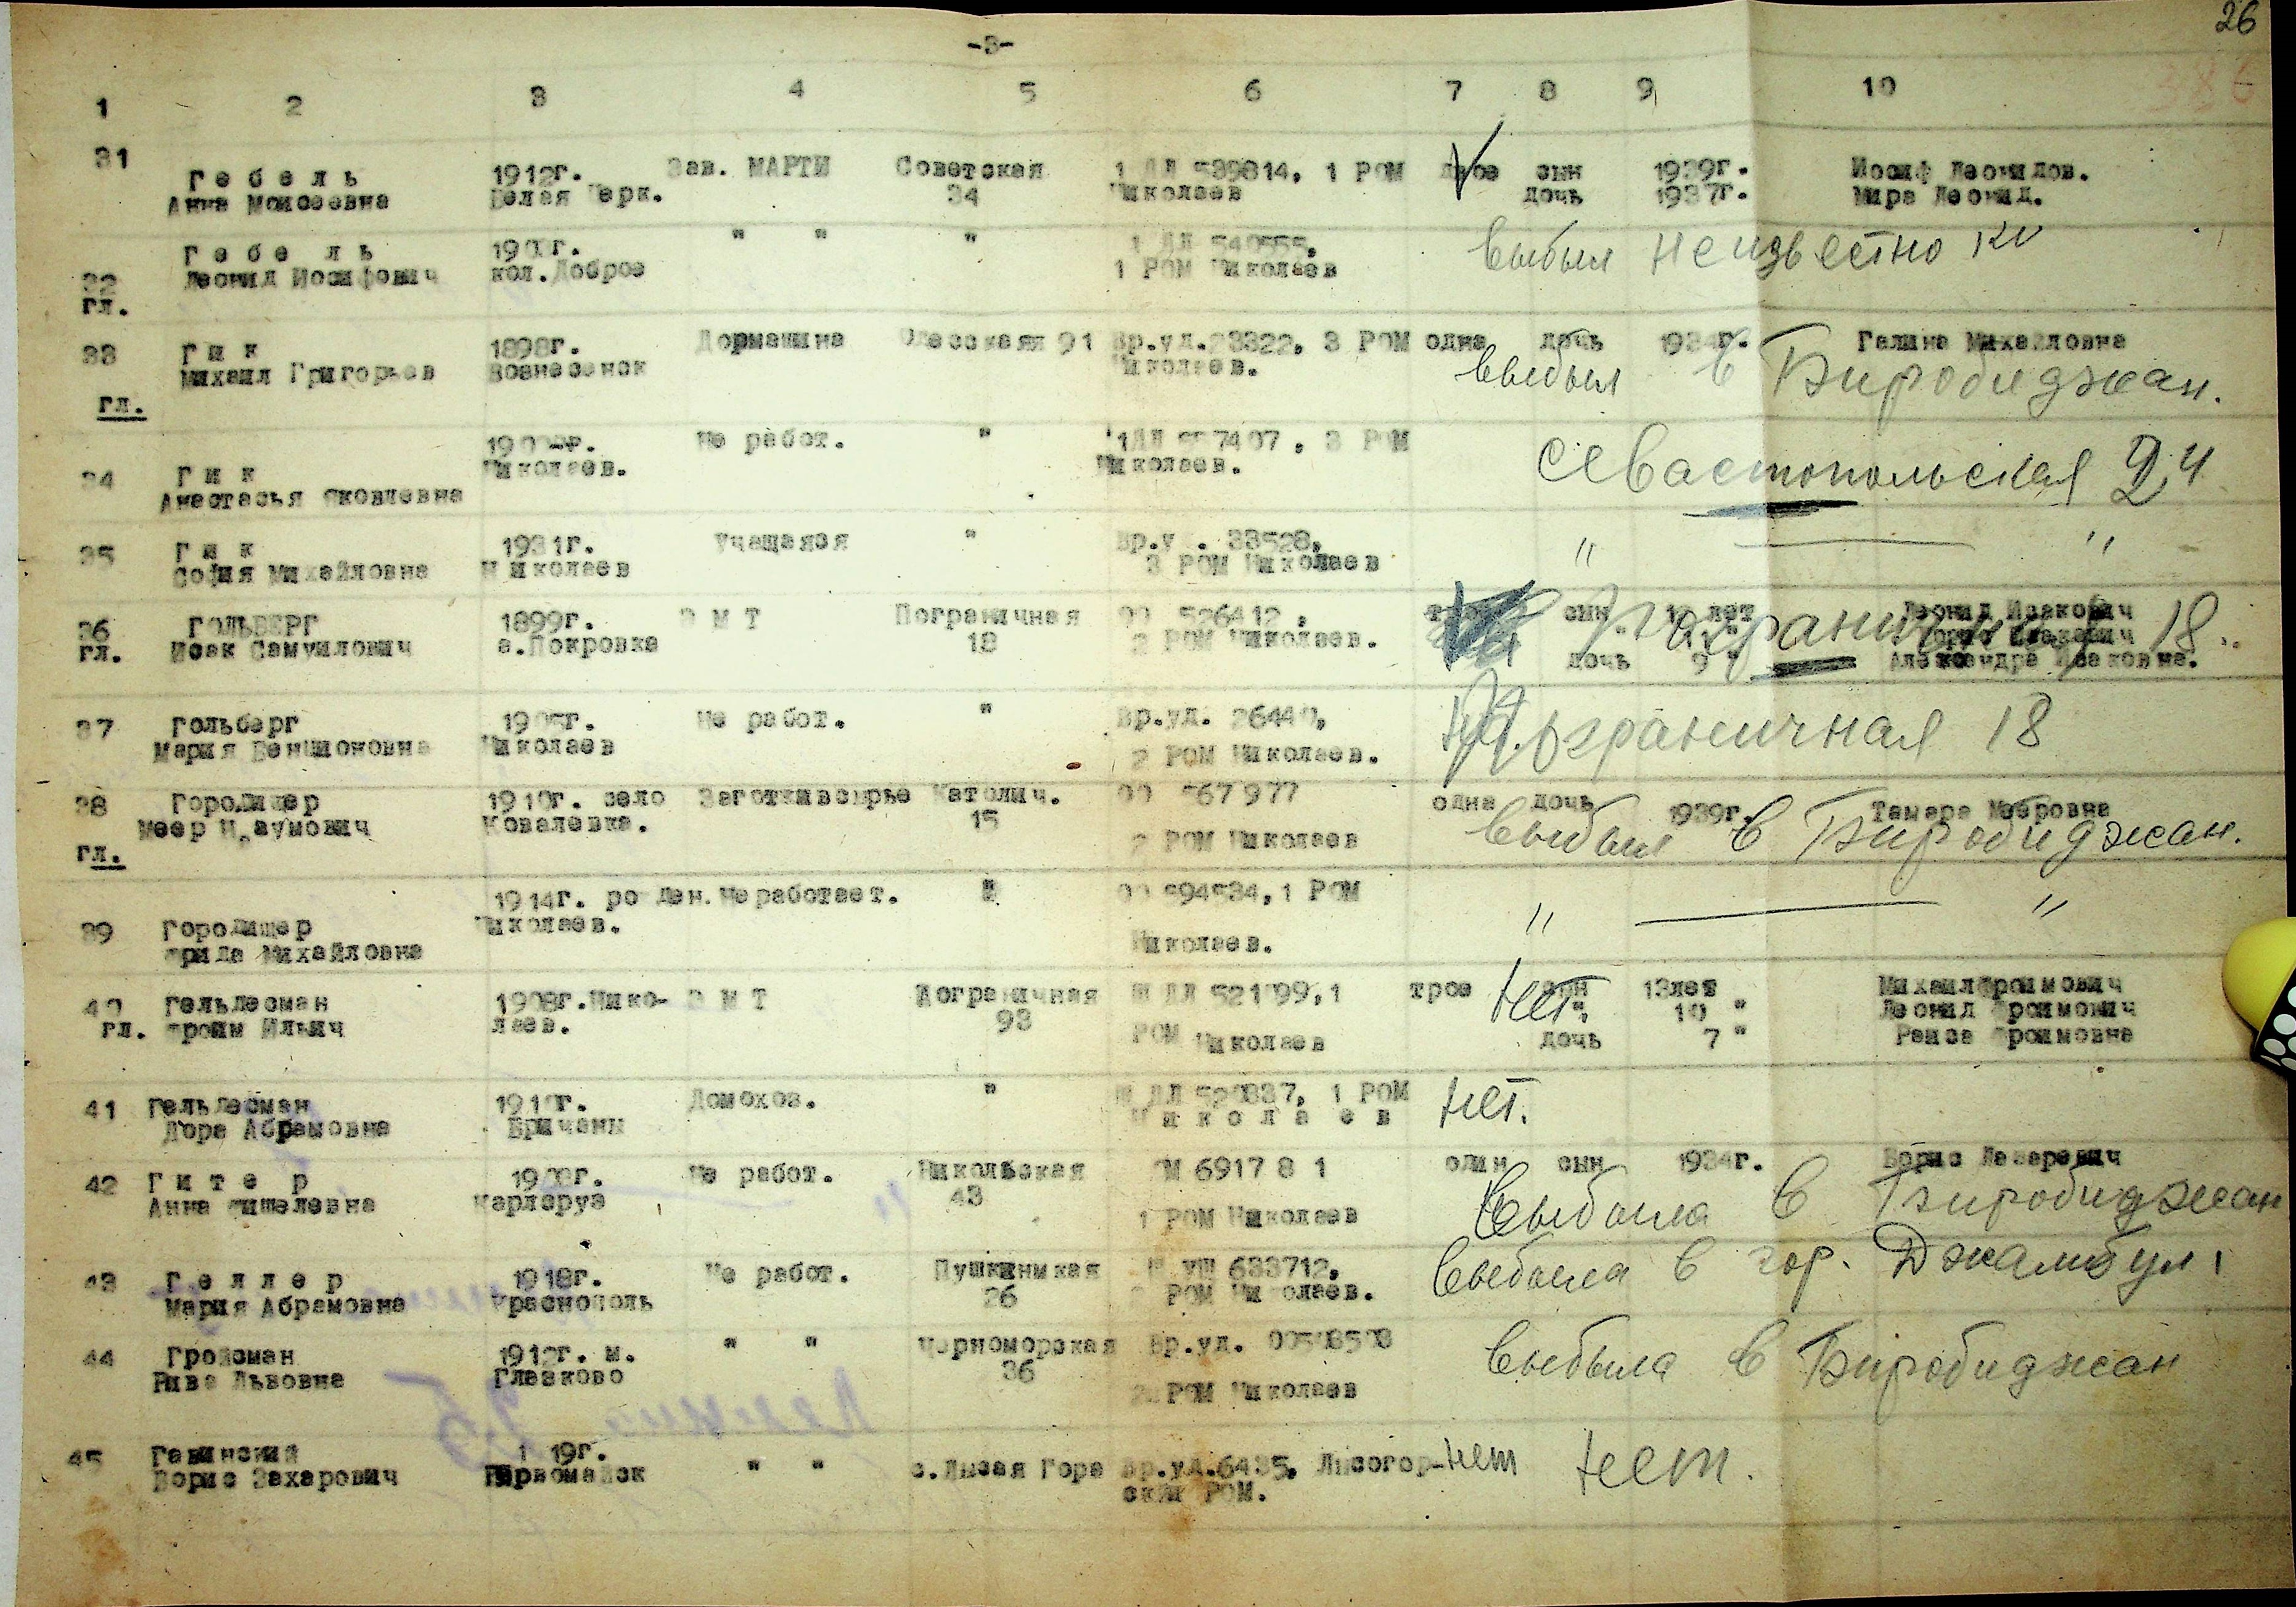 26
-3-
1 2 3 4 5 6 7 8 9 10
386
31 Гебель 1912г. Зав. МАРТИ Советская 1 ДЛ 539814, 1 РОМ двое сын 1939г. Иосиф Леонидов.
Анна Моисеевна Белая Церк. 34 Николаев дочь 1937г. Мира Леонид.
Гебель " " " 1 ДЛ
32 Леонид Иосифович кол.Доброе 1 РОМ Николаев выбыл неизвестно
гл.
33 Гик 1898г. Дормашина Одесская 91 Вр.уд.23322, 3 РОМ одна дочь 1934г. Галина Михайловна
Михаил Григорьев Вознесенск Николаев. выбыл в Биробиджан.
гл.
Не работ. " 3 РОМ
34 Гик Николаев. Николаев. Севастопольская 24
Анастасья Яковлевна
35 Гик 1931г. учащаяся " Вр.у . 33528, " — "
София Михайловна Николаев 3 РОМ Николаев
36 ГОЛЬБЕРГ 1899г. ЭМТ Пограничная 526412, сын лет Леонид Исакович
гл. Исак Самуилович а.Покровка 18 2 РОМ Николаев. Пограничная 18
дочь 9 " Александра Исаковна.
37 Гольберг Не работ. " Вр.уд. Пограничная 18
Мария Бенционовна Николаев 2 РОМ Николаев.
38 Городищер 1910г. село Заготживсырье Католич. 567977 одна дочь 1939г. Тамара Мееровна
Меер Наумович Ковалевка. 15 2 РОМ Николаев выбыл в Биробиджан.
гл.
1914г. рожден. Не работает. " 594534, 1 РОМ
39 Городищер Николаев. Николаев. " — "
Фрида Михайловна
40 Гельдесман 1908г.Нико- ЭМТ Пограничная 1 трое сын 13лет Михаил Фроимович
гл. Фроим Ильич лаев. 93 РОМ Николаев нет. " 10 " Леонид Фроимович
дочь 7 " Раиса Фроимовна
41 Гельдесман Домохоз. " 1 РОМ нет.
Дора Абрамовна Бричаны Николаев
42 Гитер Не работ. Никольская 691781 один сын 1934г. Борис Лазаревич
Анна Фишелевна Карлеруэ 43 1 РОМ Николаев выбыла в Биробиджан
43 Геллер 1918г. Не работ. Пушкинская 633712, выбыла в гор. Джамбул
Мария Абрамовна Краснополь 26 РОМ Николаев.
44 Гройсман 1912г. м. " " Черноморская Вр.уд. выбыла в Биробиджан
Рива Львовна Глазково 36 2 РОМ Николаев
45 Гавинский 19г. " " с.Лысая Гора Вр.уд.6435, Лысогор- нет нет.
Борис Захарович Первомайск ский РОМ.